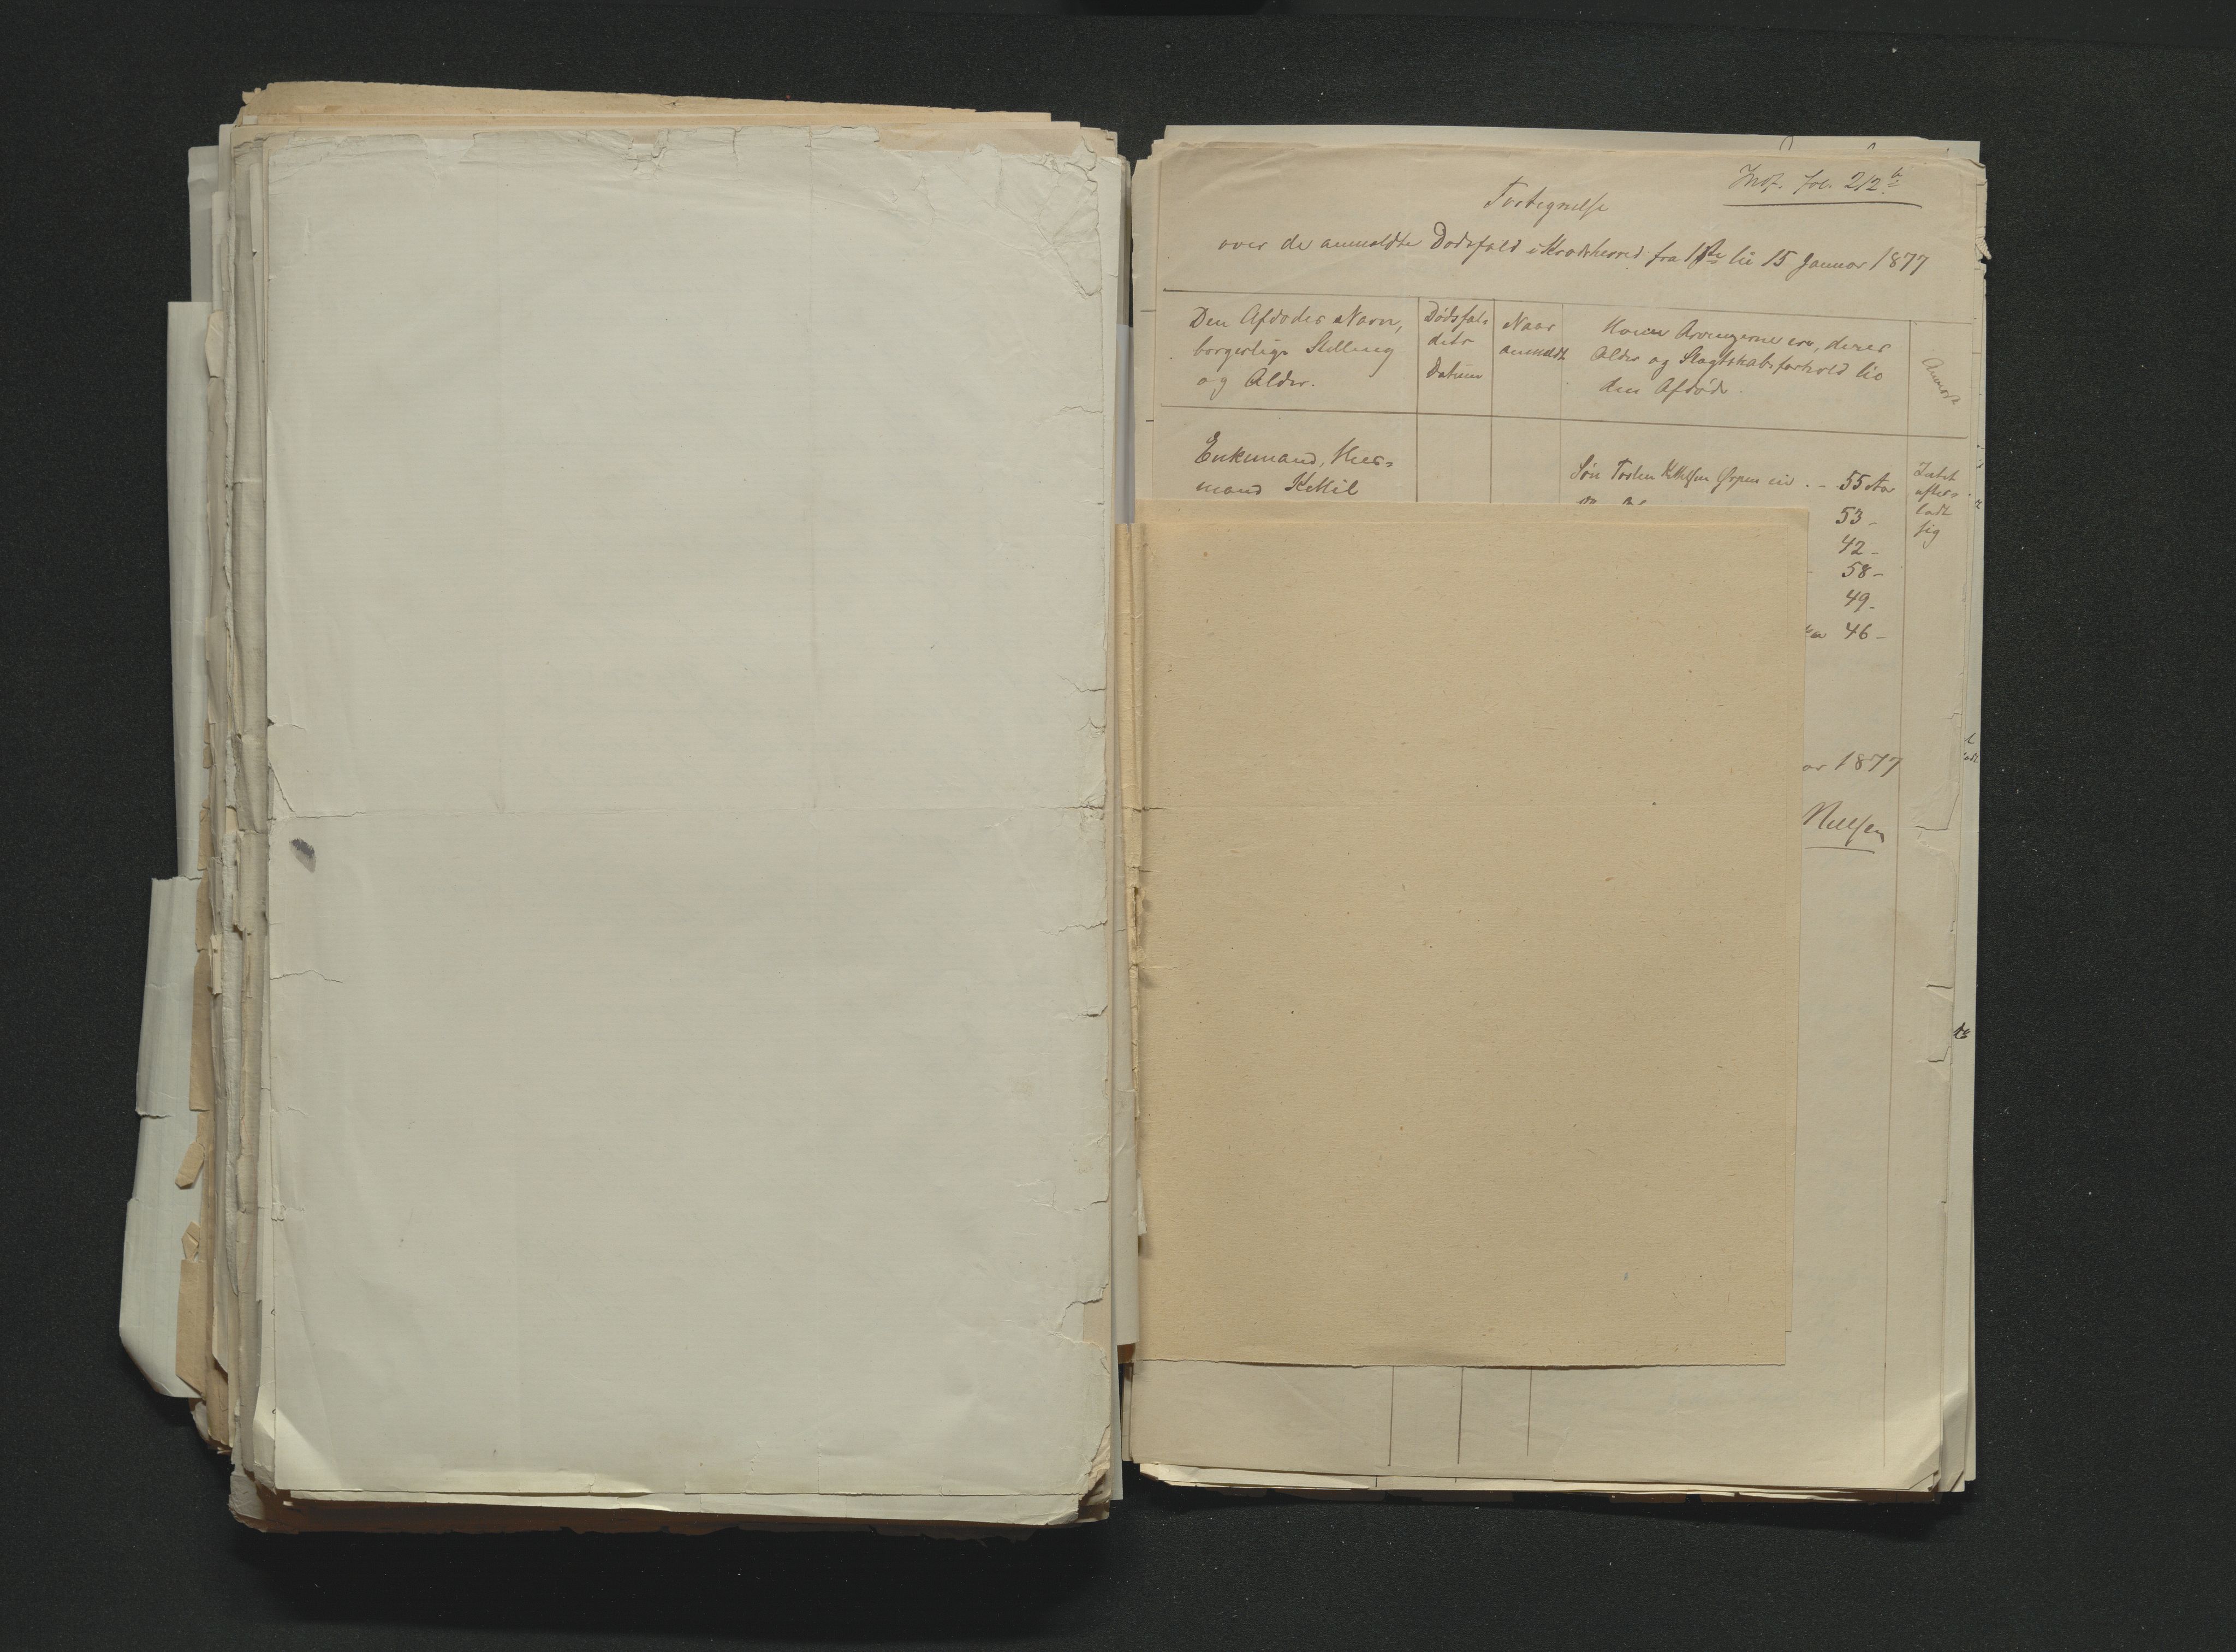 Indf. fol. 212 b
Fortegnelse
over de anmeldte Dødsfald i Krødsherred fra 1ste til 15 Januar 1877
Den Afdødes Navn,
borgerlige Stilling
og Alder.
Dødsfal-
dets
Datum
Naar
anmeldt
Hvem Arvingerne ere, deres
Alder og Slægtskabsforhold til
den Afdøde.
Enkemand, Huus-
mand Kittil
Søn Torsten Kittilsen Ørpen eie - 55 Aar
53 -
42 -
58 -
49 -
46 -
Intet
efter-
ladt
sig
ar 1877
Nilsen